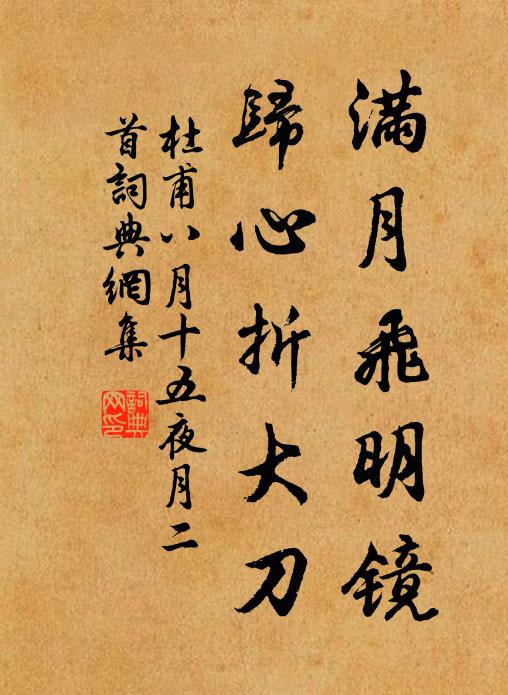 滿月飛明鏡
歸心折大刀
杜甫八月十五夜月二
首詞典網集
詞典
网印